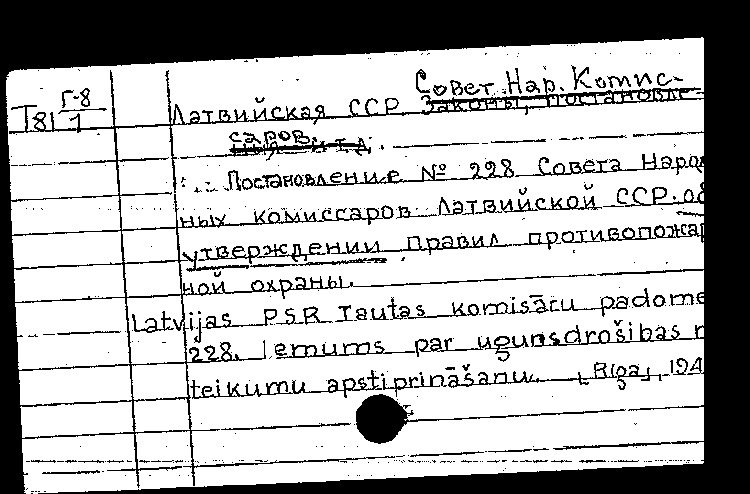 Совет Нар. Комис-
Г-8
T81 1
Латвийская ССР. Законы, постановле-
саров.
... Постановление № 228 Совета Народ
ных комиссаров Латвийской ССР об
утверждении правил противопожар
ной охраны.
Latvijas PSR Tautas komisāru padome
228. lēmums par ugunsdrošības n
teikumu apstiprināšanu. [Rīga], 194